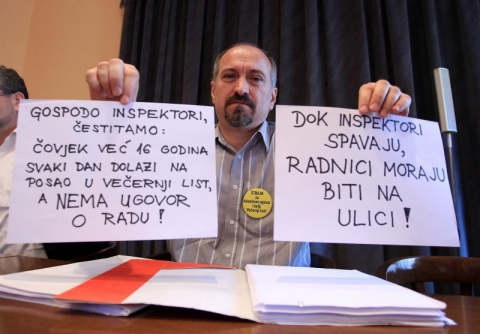 GOSPODO INSPEKTORI,
ČESTITAMO:
ČOVJEK VEĆ 16 GODINA
SVAKI DAN DOLAZI NA
POSAO U VEČERNJI LIST,
A NEMA UGOVOR
O RADU!
DOK INSPEKTORI
SPAVAJU,
RADNICI MORAJU
BITI NA
ULICI!